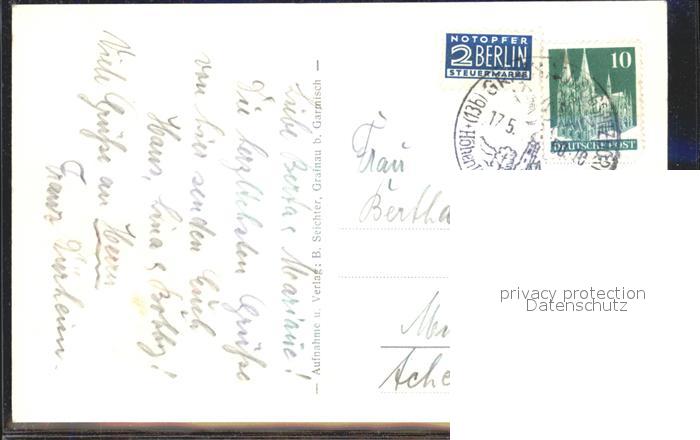 Liebe Berta & Mariane!
Die herzlichsten Grüße
von hier senden Euch
Hans, Lina & Bobby!
Viele Grüße an Herrn
Franz
Aufnahme u. Verlag: B. Seichter, Grainau b. Garmisch
NOTOPFER
2 BERLIN
STEUERMARKE
10
DEUTSCHE POST
(13b)
17.5.
Frau
Bertha
Ache
privacy protection
Datenschutz